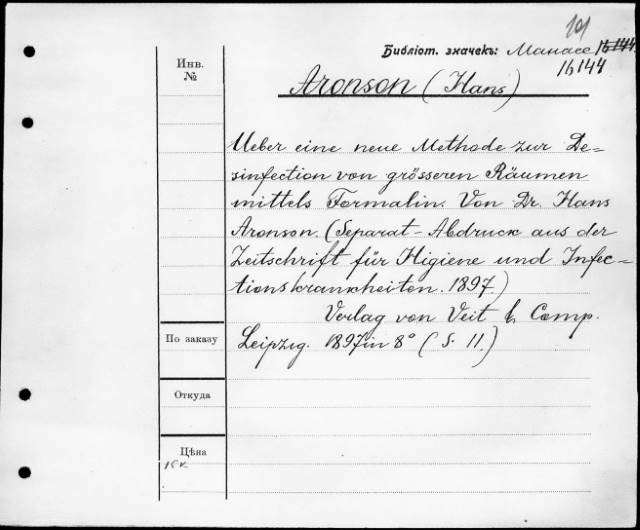 101
Библіот. значекъ: Манасе 16144
16144
Инв.
№
Aronson (Hans)
Ueber eine neue Methode zur De=
sinfection von grösseren Räumen
mittels Formalin. Von Dr. Hans
Aronson. (Separat-Abdruck aus der
Zeitschrift für Higiene und Infec=
tionskrankheiten. 1897.)
Verlag von Veit & Comp.
По заказу
Leipzig. 1897 in 8° (S. 11.)
Откуда
Цѣна
15 к.